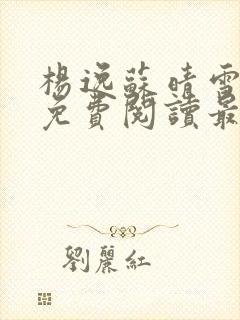 楊逸蘇晴雪
免費閱讀最
劉麗紅